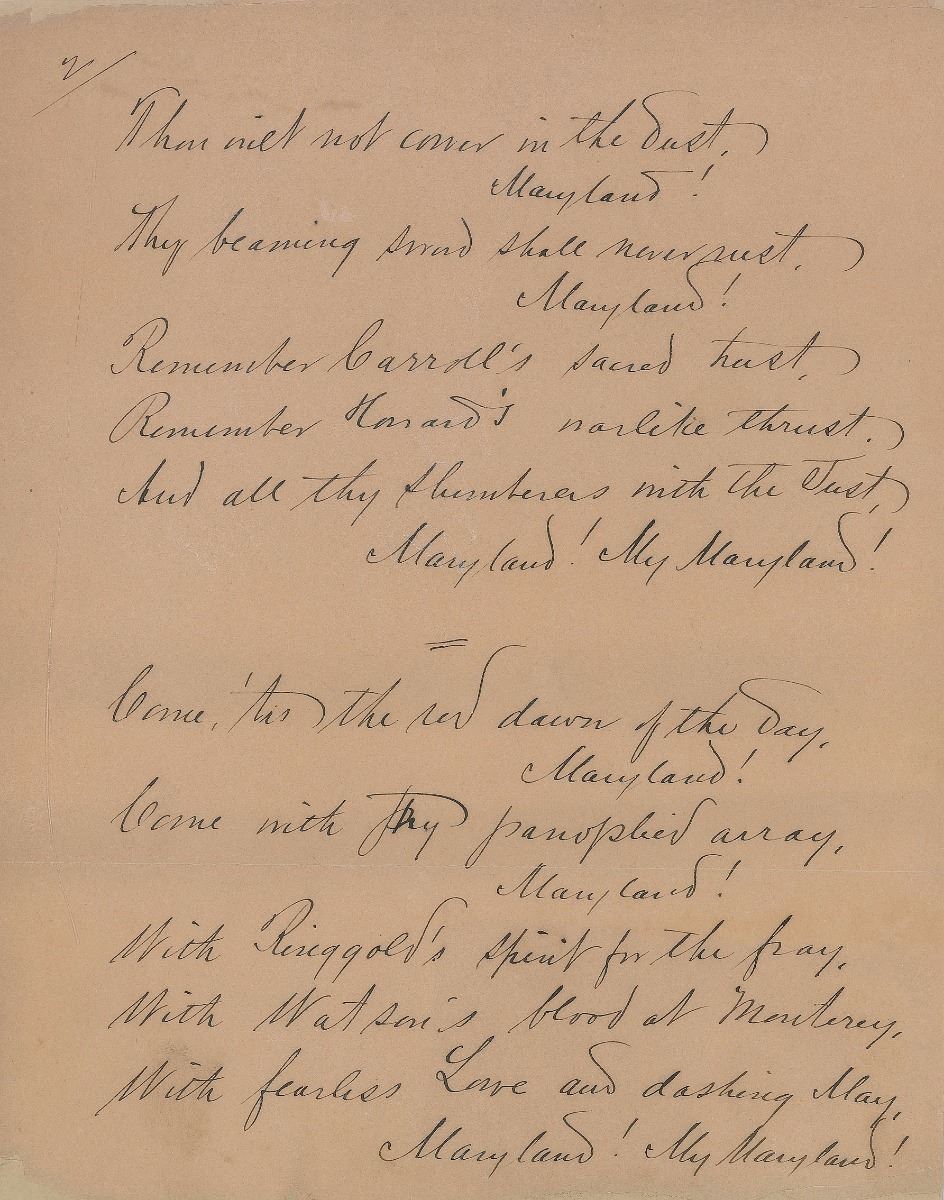 2/
Thou wilt not cower in the Dust,
Maryland!
Thy beaming sword shall never rust,
Maryland!
Remember Carroll's sacred trust,
Remember Howard's warlike thrust,
And all thy slumberers with the Just,
Maryland! My Maryland!
=
Come, 'tis the red dawn of the Day,
Maryland!
Come with thy panoplied array,
Maryland!
With Ringgold's spirit for the fray,
With Watson's blood at Monterey,
With fearless Lowe and dashing May,
Maryland! My Maryland!